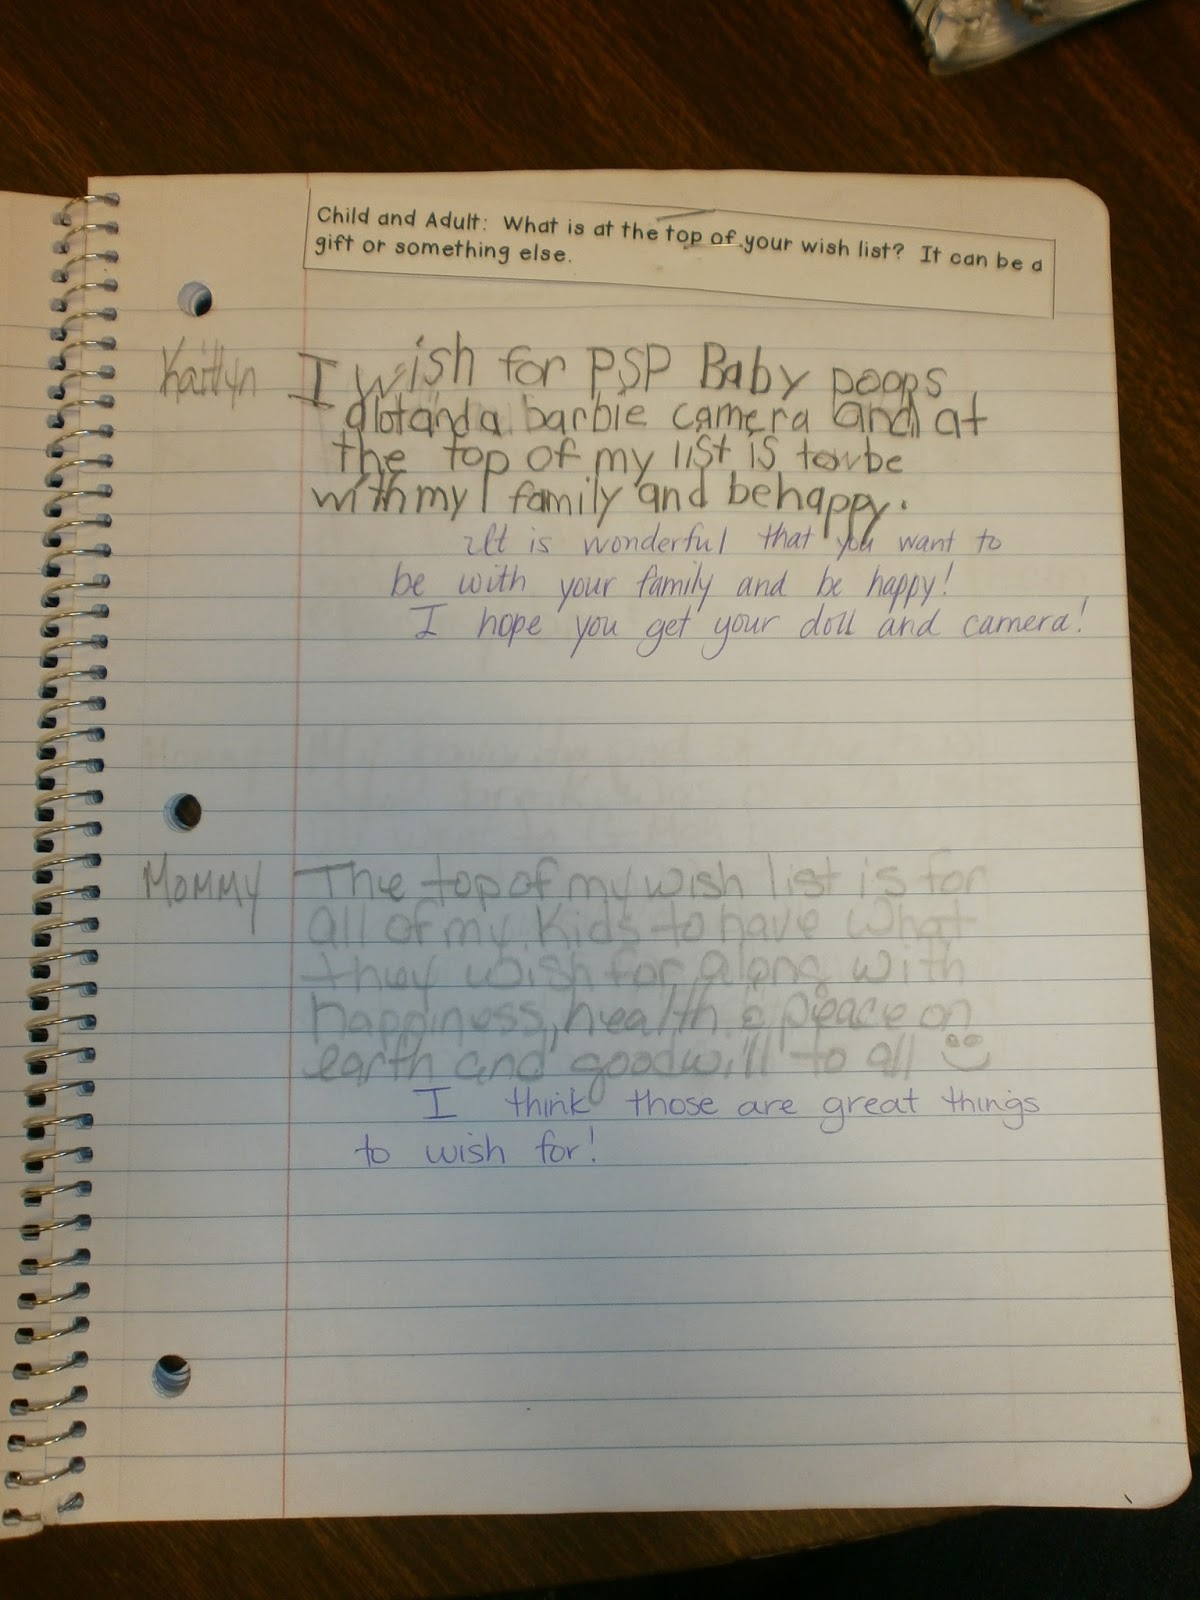 Child and Adult: What is at the top of your wish list? It can be a
gift or something else.
Kaitlyn I wish for PSP Baby poops
alot and a barbie camera and at
the top of my list is to be
with my family and be happy.
It is wonderful that you want to
be with your family and be happy!
I hope you get your doll and camera!
Mommy The top of my wish list is for
all of my kids to have what
they wish for along with
happiness, health & peace on
earth and goodwill to all
I think those are great things
to wish for!